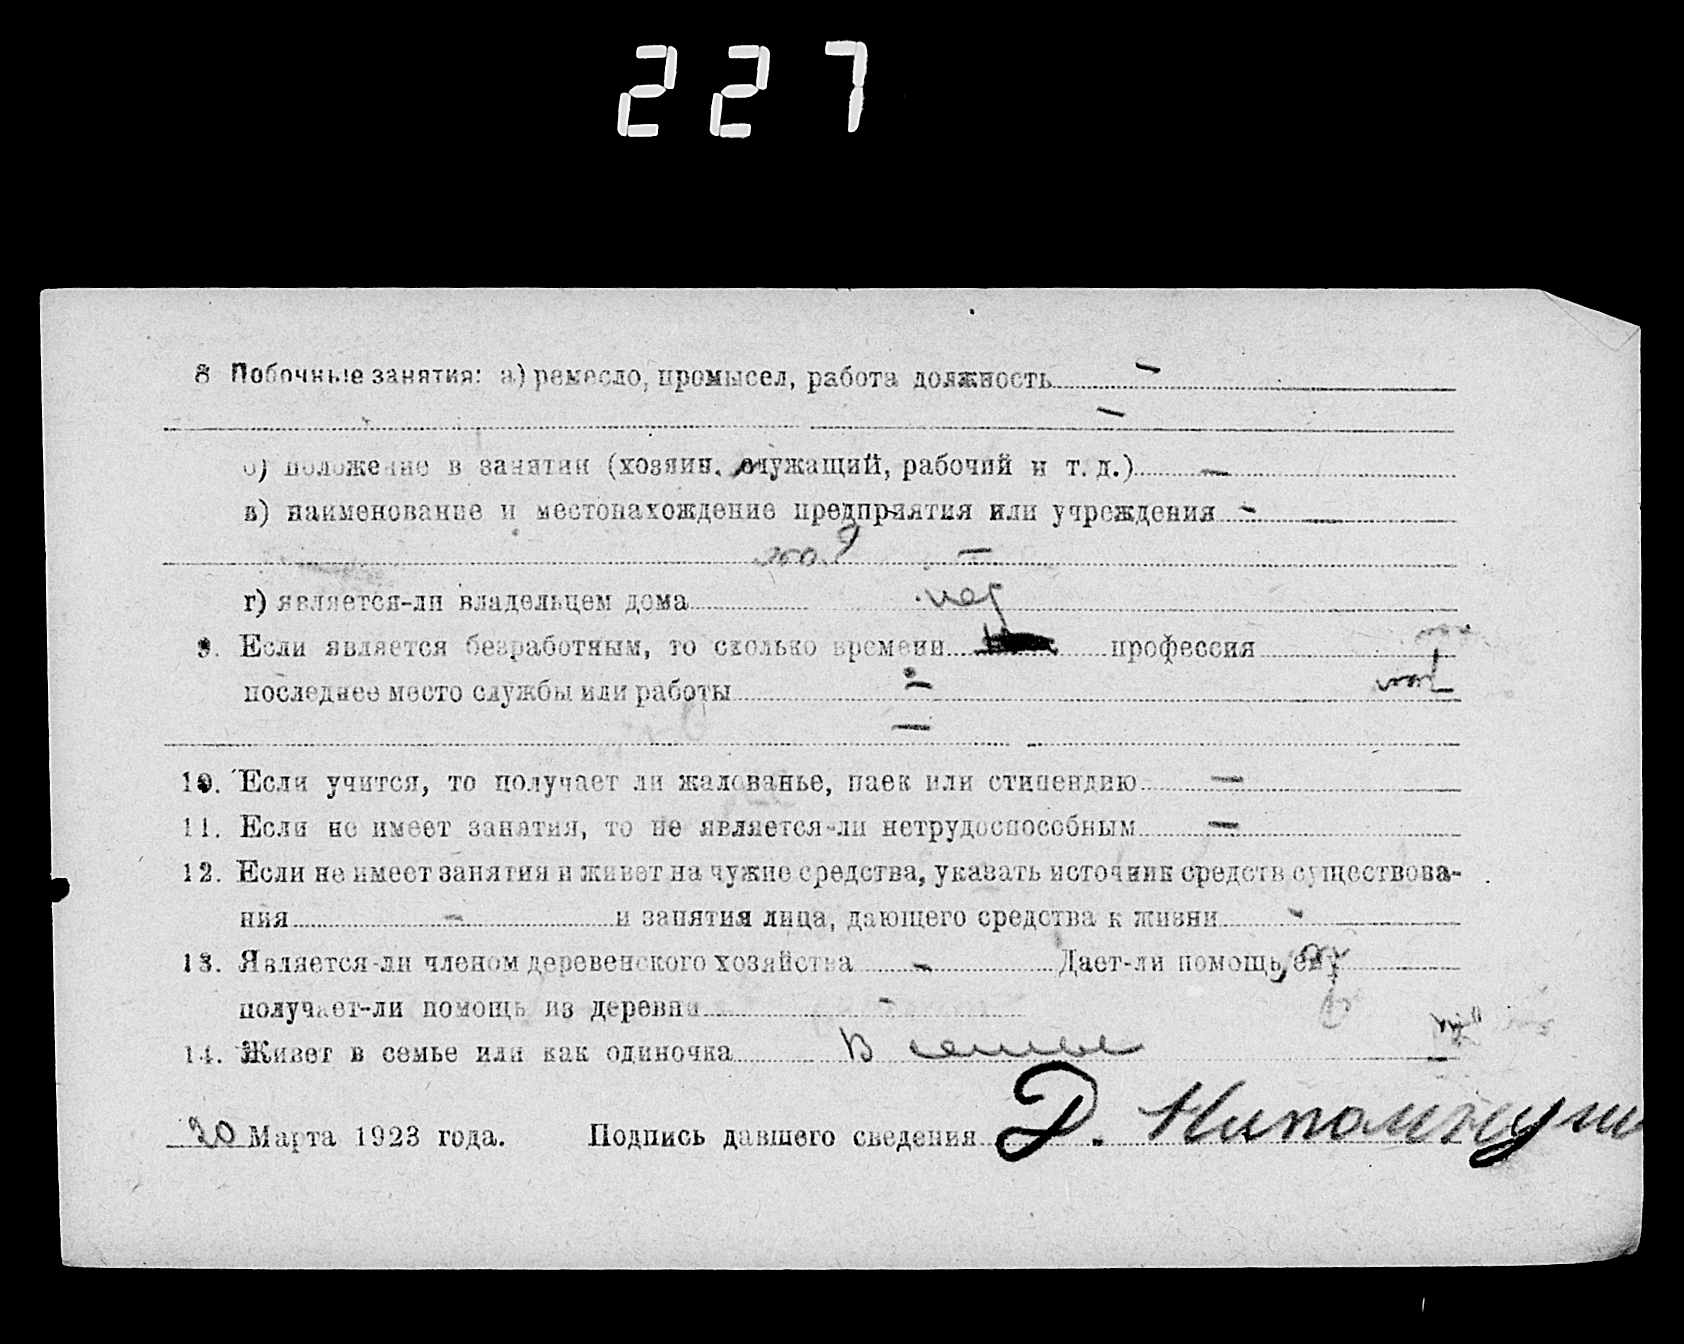 227
8 Побочные занятия: а) ремесло, промысел, работа должность —
—
б) положение в занятии (хозяин, служащий, рабочий и т. д.) —
в) наименование и местонахождение предприятия или учреждения —
—
г) является-ли владельцем дома нет
9. Если является безработным, то сколько времени профессия
последнее место службы или работы —
—
10. Если учится, то получает ли жалованье, паек или стипендию —
11. Если не имеет занятия, то не является-ли нетрудоспособным —
12. Если не имеет занятия и живет на чужие средства, указать источник средств существова-
ния — и занятия лица, дающего средства к жизни -
13. Является-ли членом деревенского хозяйства - Дает-ли помощь, ему
получает-ли помощь из деревни -
14. Живет в семье или как одиночка В семье
20 Марта 1923 года. Подпись давшего сведения Д.